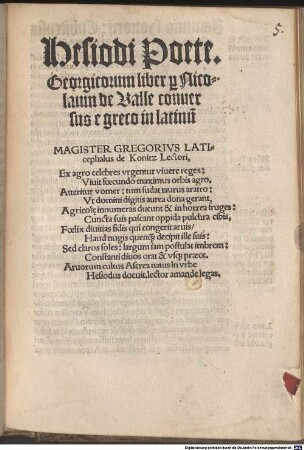 5.
Hesiodi Poete.
Georgicorum liber ꝑ Nico-
laum de Ualle conuer
sus e greco in latinū
MAGISTER GREGORIVS LATI
cephalus de Konitz Lectori,
Ex agro celebres vrgentur viuere reges:
Viuit fœcundo maximus orbis agro,
Atteritur vomer: tum sudat taurus aratro:
Vt domini digitis aurea dona gerant,
Agricolę innumeras ducunt & in horrea fruges:
Cuncta suis pascunt oppida pulchra cibis,
Fœlix diuitias fidis qui congerit aruis/
Haud magis quenq̃ȝ decipit ille suis:
Sed claros soles: largum tum postulat imbrem:
Constanti diuos orat & vsq̃ȝ præce.
Aruorum cultus Ascrea natus in vrbe
Hesiodus docuit, lector amande legas.